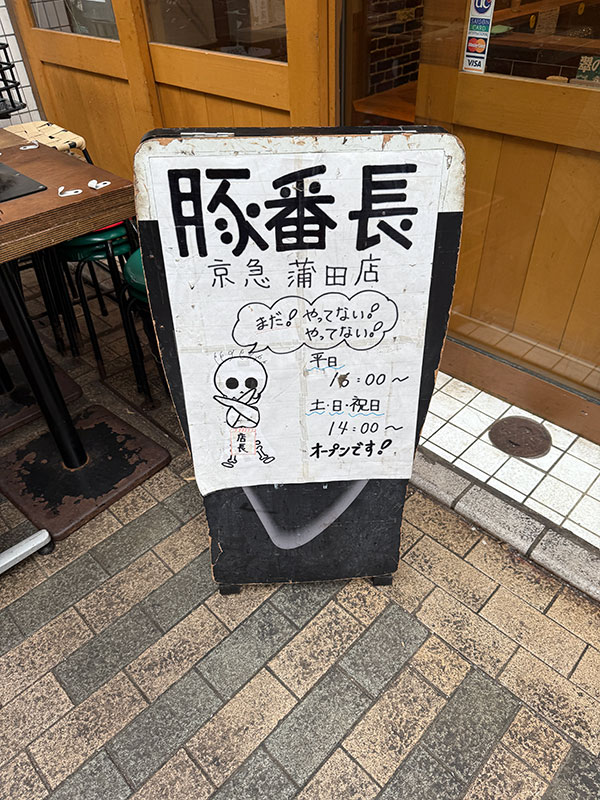 豚番長
京急 蒲田店
まだ! やってない!
やってない!
平日
16:00~
土・日・祝日
14:00~
オープンです!
店長
UC
SAISON CARD
MasterCard
VISA